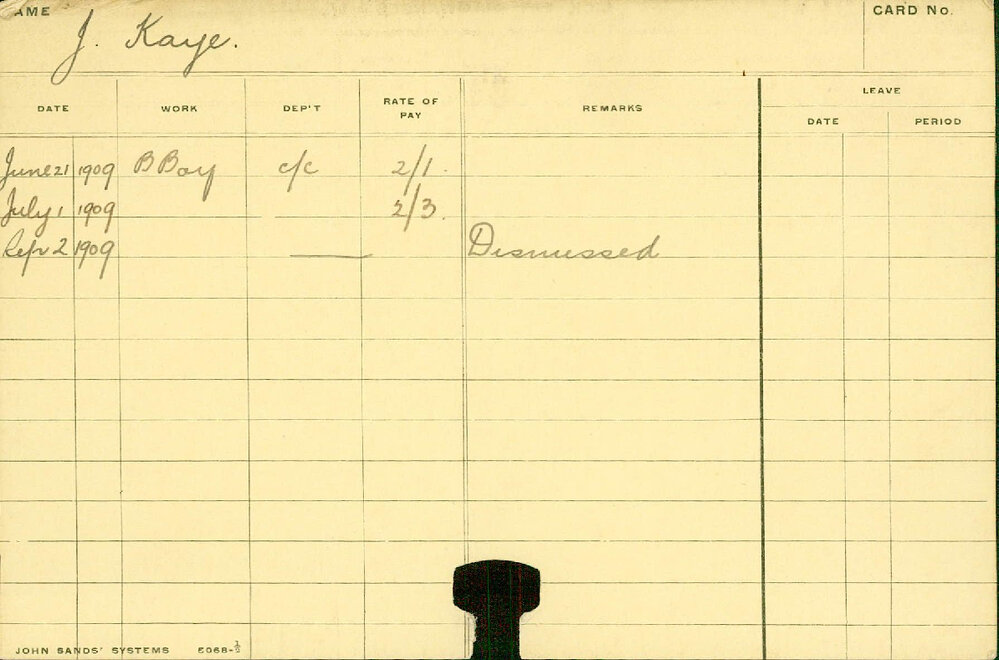 AME J. Kaye. CARD No.
DATE WORK DEP'T RATE OF PAY REMARKS LEAVE
DATE PERIOD
June 21 1909 B Boy c/c 2/1.
July 1 1909 2/3.
Sep 2 1909 —— Dismissed
JOHN SANDS' SYSTEMS 5068-½